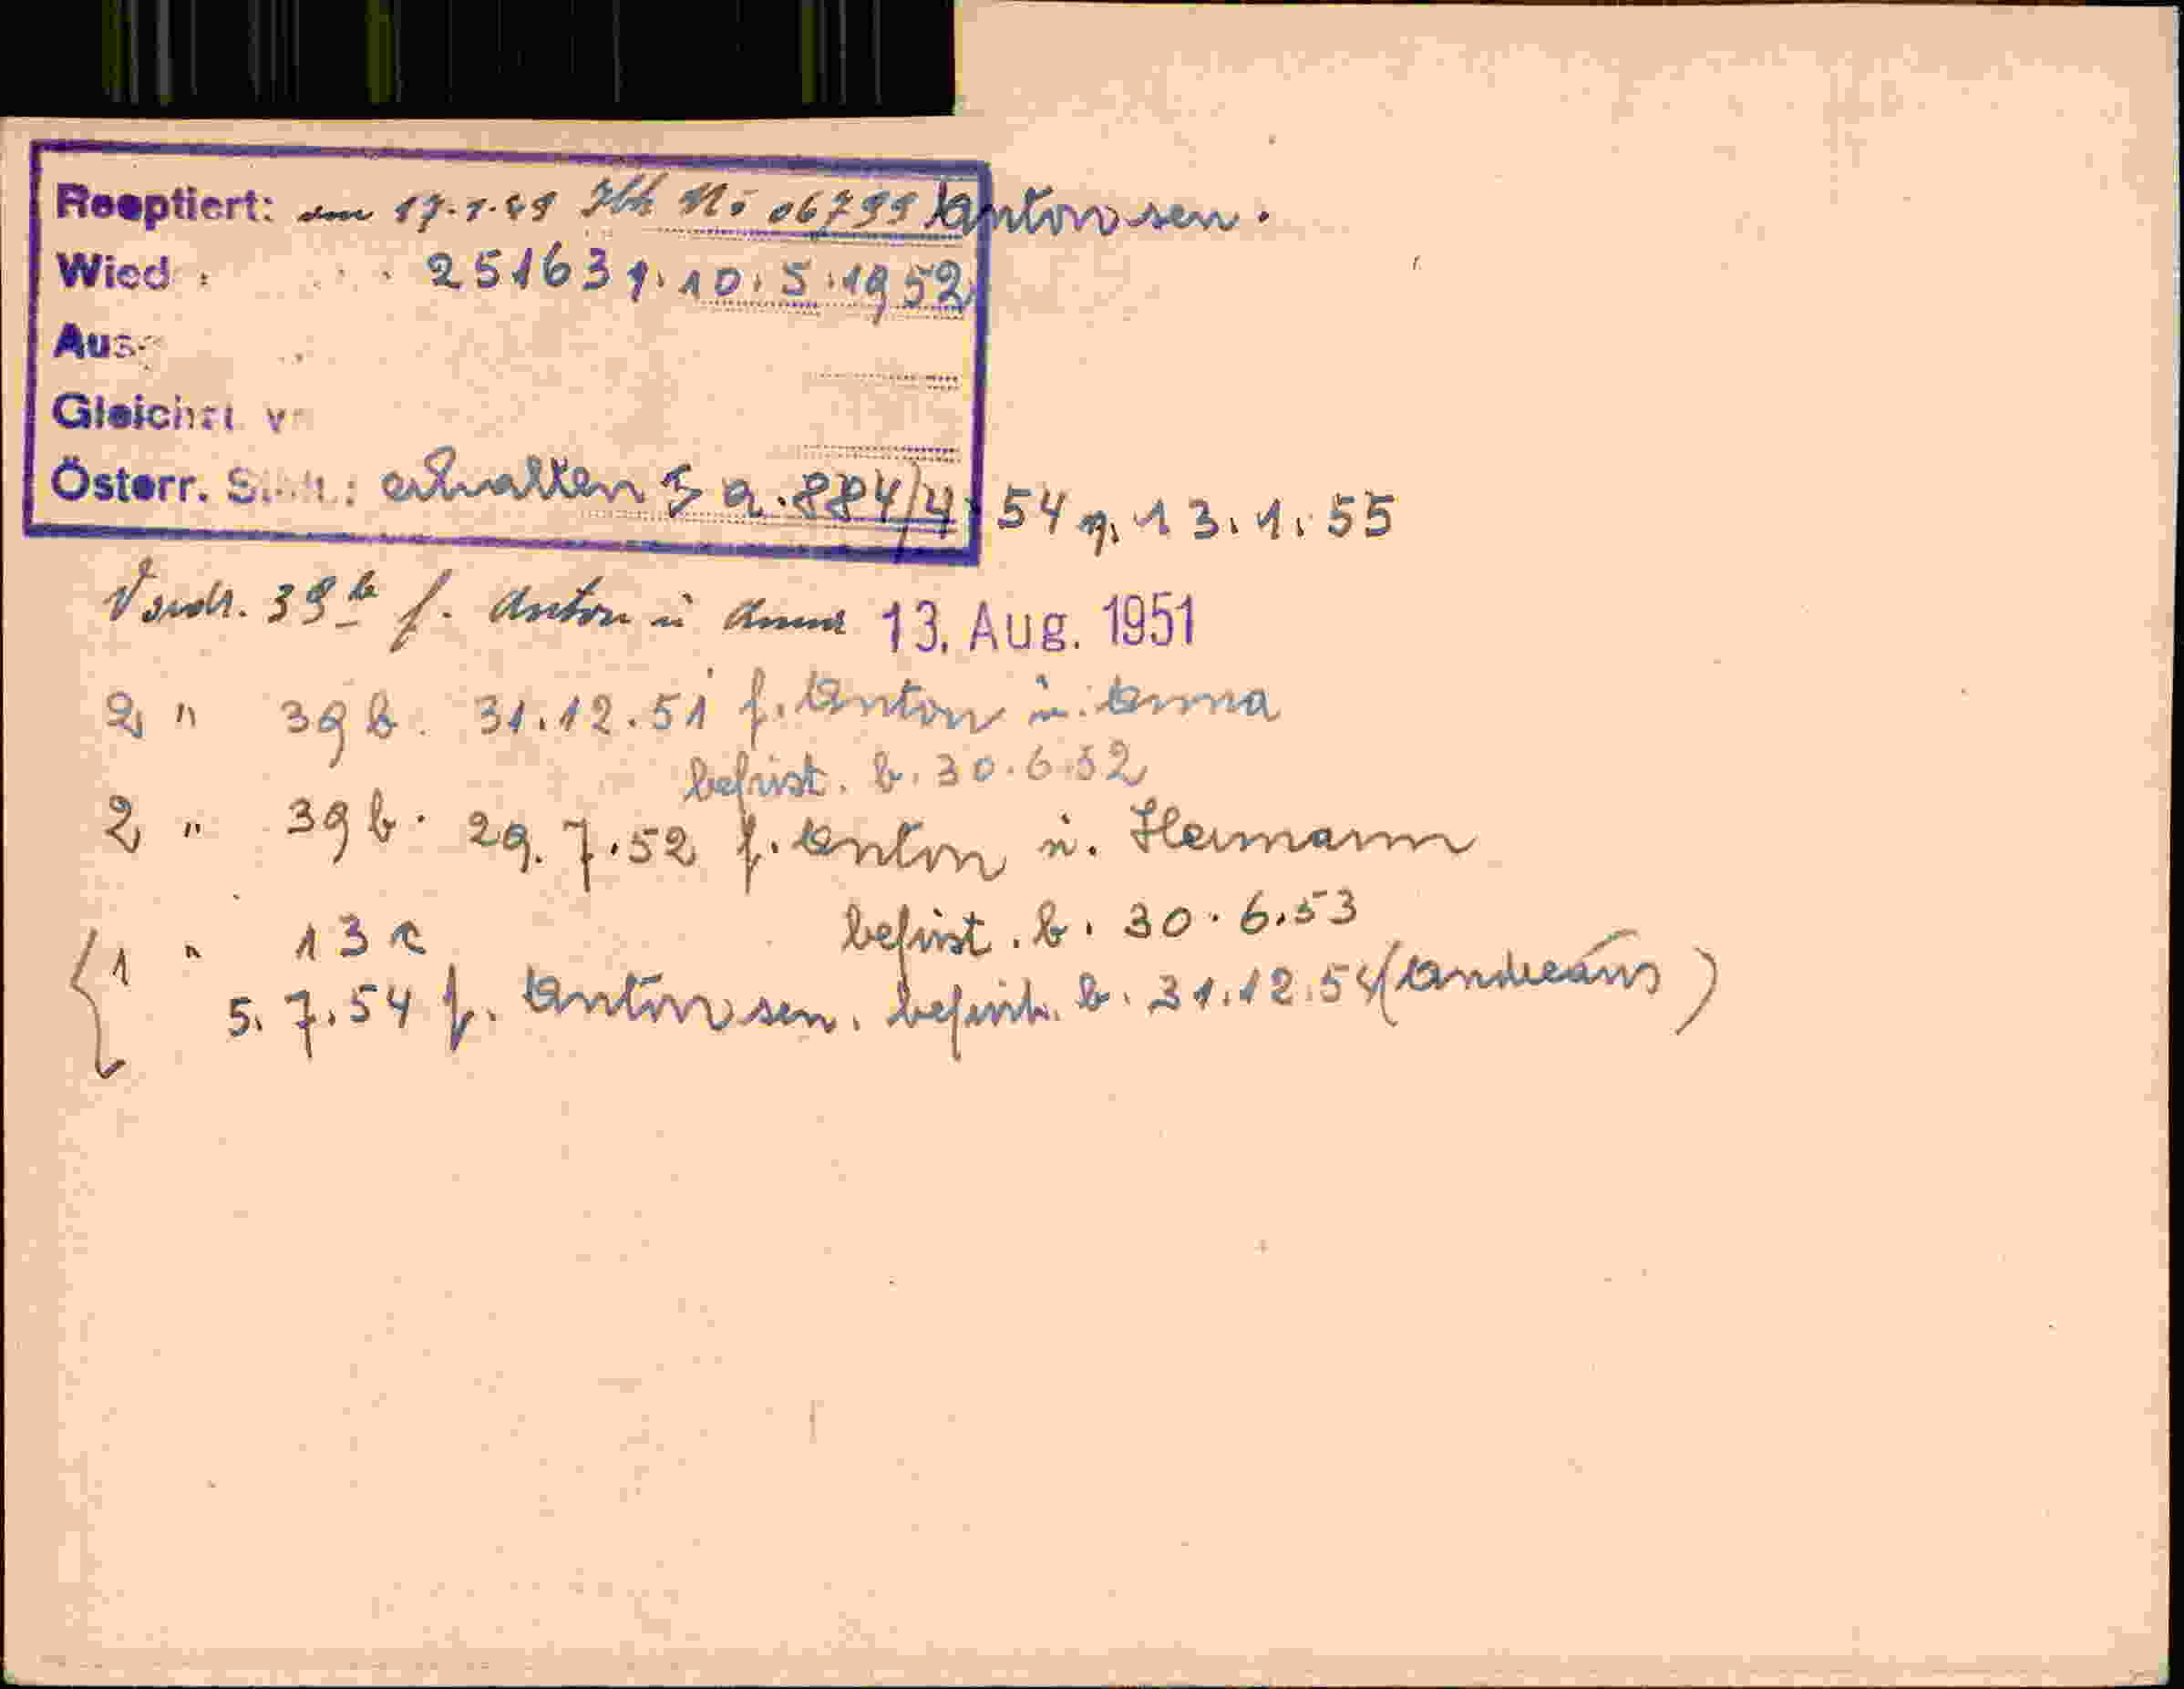 Reoptiert: am 17.1.49 Zlh No 06799 Anton sen.
Wied : 251631.10.5.1952
Ausg
Gleichst. v
Österr. St : erhalten Z a.884/4 54 v. 13.1.55
Vordr. 39b f. Anton u Anna 13. Aug. 1951
2 " 39 b. 31.12.51 f. Anton u. Anna
befrist. b. 30.6.52
2 " 39 b. 29.7.52 f. Anton u. Hermann
befrist. b. 30.6.53
1 " 13 c
5.7.54 f. Anton sen. befrist. b. 31.12.54 (Andreaus)